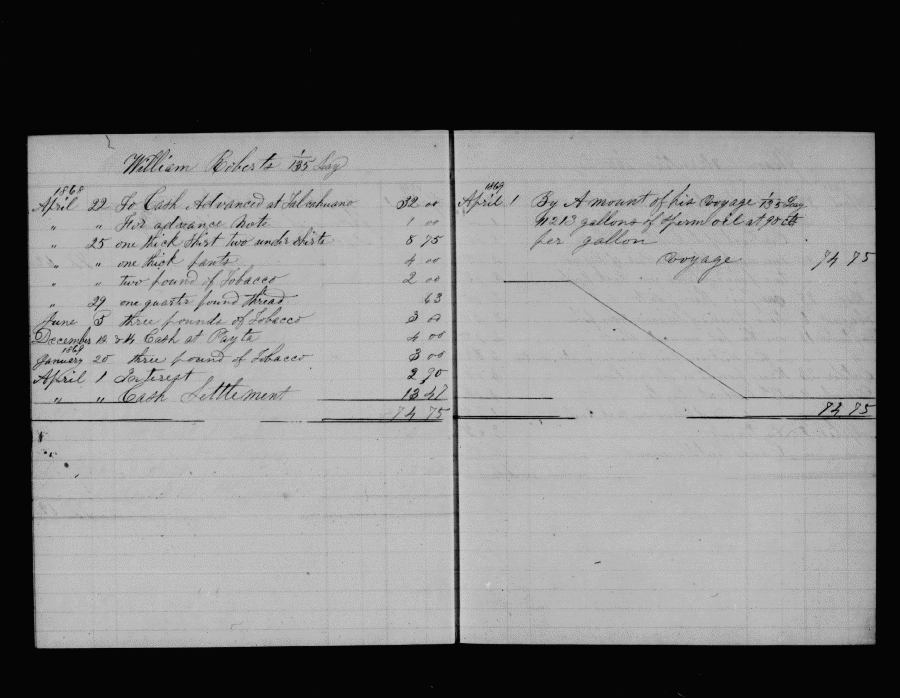 William Roberts 1/135 Lay
1868
April 22 To Cash Advanced at Talcahuano 32 00
" " For advance Note 1 00
" 25 one thick Shirt two under Shirts 8 75
" " one thick pants 4 00
" " two pound of Tobacco 2 00
" 29 one quarter pound thread 63
June 5 three pounds of Tobacco 3 00
December 12 & 14 Cash at Payta 4 00
1869
January 20 three pound of Tobacco 3 00
April 1 Interest 2 90
" " Cash Settlement 13 47
74 75
1869
April 1 By Amount of his voyage 1/135 Lay
11213 gallons of Sperm oil at 90 cts
per gallon
voyage 74 75
74 75